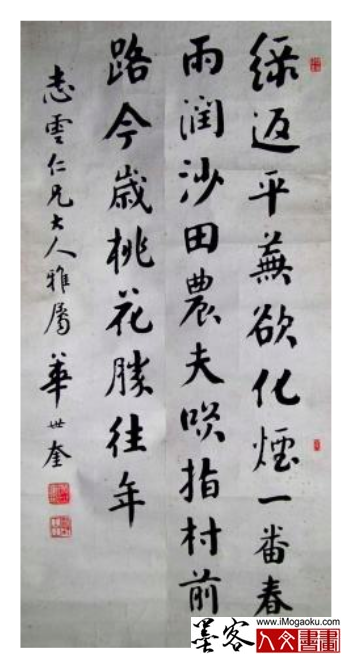 緑返平蕪欲化煙一番春
雨潤沙田農夫咲指村前
路今歳桃花勝往年
志雲仁兄大人雅屬
華世奎
墨客
www.iMogaoku.com
人文書畫